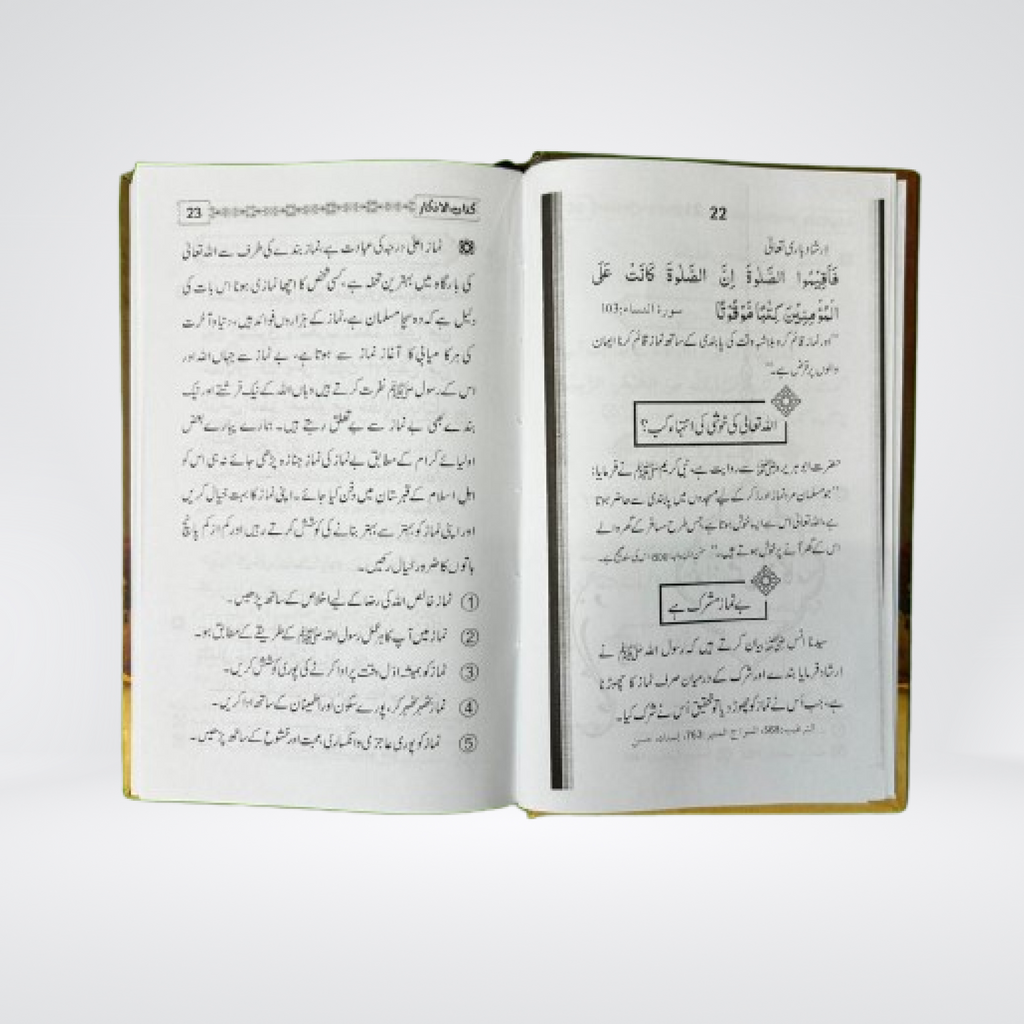 22
ارشاد باری تعالیٰ
فَأَقِيمُوا الصَّلٰوةَ اِنَّ الصَّلٰوةَ كَانَتْ عَلَى
الْمُؤْمِنِيْنَ كِتٰبًا مَّوْقُوْتًا سورة النساء:103
"اور نماز قائم کرو بلاشبہ وقت کی پابندی کے ساتھ نماز قائم کرنا ایمان
والوں پر فرض ہے۔"
اللہ تعالیٰ کی خوشی کی انتہاء کب؟
حضرت ابو ہریرہ رضی اللہ عنہ سے روایت ہے، نبی کریم ﷺ نے فرمایا:
"جو مسلمان مرد نماز اور ذکر کے لیے مسجدوں میں پابندی سے حاضر ہوتا
ہے، اللہ تعالیٰ اس سے ایسا خوش ہوتا ہے جس طرح مسافر کے گھر والے
اس کے گھر آنے پر خوش ہوتے ہیں۔" سنن ابن ماجہ (800) اس کی سند صحیح ہے۔
بے نماز مشرک ہے
سیدنا انس رضی اللہ عنہ بیان کرتے ہیں کہ رسول اللہ ﷺ نے
ارشاد فرمایا بندے اور شرک کے درمیان صرف نماز کا چھوڑنا
ہے، جب اُس نے نماز کو چھوڑ دیا تو تحقیق اُس نے شرک کیا۔
الترغيب:568، السراج المنير:763، إسناده حسن
كتاب الاذكار 23
نماز اعلیٰ درجہ کی عبادت ہے، نماز بندے کی طرف سے اللہ تعالیٰ
کی بارگاہ میں بہترین تحفہ ہے، کسی شخص کا اچھا نمازی ہونا اس بات کی
دلیل ہے کہ وہ سچا مسلمان ہے، نماز کے ہزاروں فوائد ہیں، دنیا و آخرت
کی ہر کامیابی کا آغاز نماز سے ہوتا ہے، بے نماز سے جہاں اللہ اور
اس کے رسول ﷺ نفرت کرتے ہیں وہاں اللہ کے نیک فرشتے اور نیک
بندے بھی بے نماز سے بے تعلق رہتے ہیں۔ ہمارے پیارے بعض
اولیائے کرام کے مطابق بے نماز کی نماز جنازہ پڑھی جائے نہ ہی اس کو
اہل اسلام کے قبرستان میں دفن کیا جائے۔ اپنی نماز کا بہت خیال کریں
اور اپنی نماز کو بہتر سے بہتر بنانے کی کوشش کرتے رہیں اور کم از کم پانچ
باتوں کا ضرور خیال رکھیں۔
① نماز خالص اللہ کی رضا کے لیے اخلاص کے ساتھ پڑھیں۔
② نماز میں آپ کا ہر عمل رسول اللہ ﷺ کے طریقے کے مطابق ہو۔
③ نماز کو ہمیشہ اوّل وقت پر ادا کرنے کی پوری کوشش کریں۔
④ نماز ٹھہر ٹھہر کر، پورے سکون اور اطمینان کے ساتھ ادا کریں۔
⑤ نماز کو پوری عاجزی و انکساری، محبت اور خشوع کے ساتھ پڑھیں۔